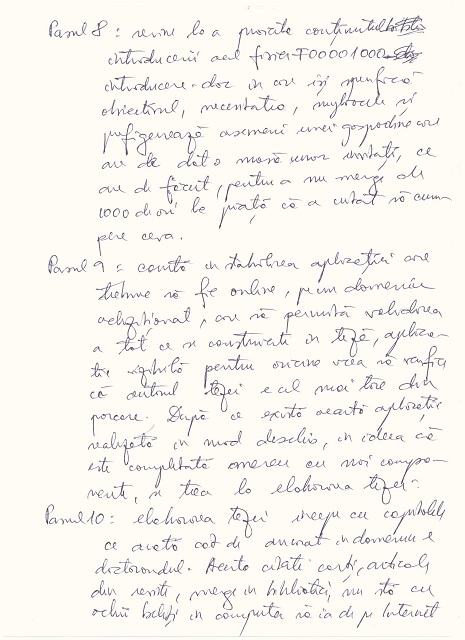 Pasul 8 : revine la a preciza conținutul
introducerii al fisier F00001000
introducere.doc in care își specifică
obiectivul, necesitatea, mijloacele și
prefigurează asemeni unei gospodine care
are de dat o masă unor invitați, ce
are de făcut, pentru a nu merge de
1000 de ori la piață că a uitat să cum-
pere ceva.
Pasul 9 : constă in stabilirea aplicației care
trebuie să fie online, pe un domeniu
achiziționat, care să permită validarea
a tot ce se construiește in teză, aplica-
ție vizibilă pentru oricine vrea să verifice
că autorul tezei e cel mai tare din
parcare. După ce există această aplicație
realizată in mod deschis, in ideea că
este completată mereu cu noi compo-
nente, se trece la elaborarea tezei.
Pasul 10 : elaborarea tezei incepe cu capitolele
ce arată cât de ancorat in domeniu e
doctorandul. Acesta citește cărți, articole
din reviste, merge in bibliotecă, nu stă cu
ochii belați in computer să ia de pe Internet